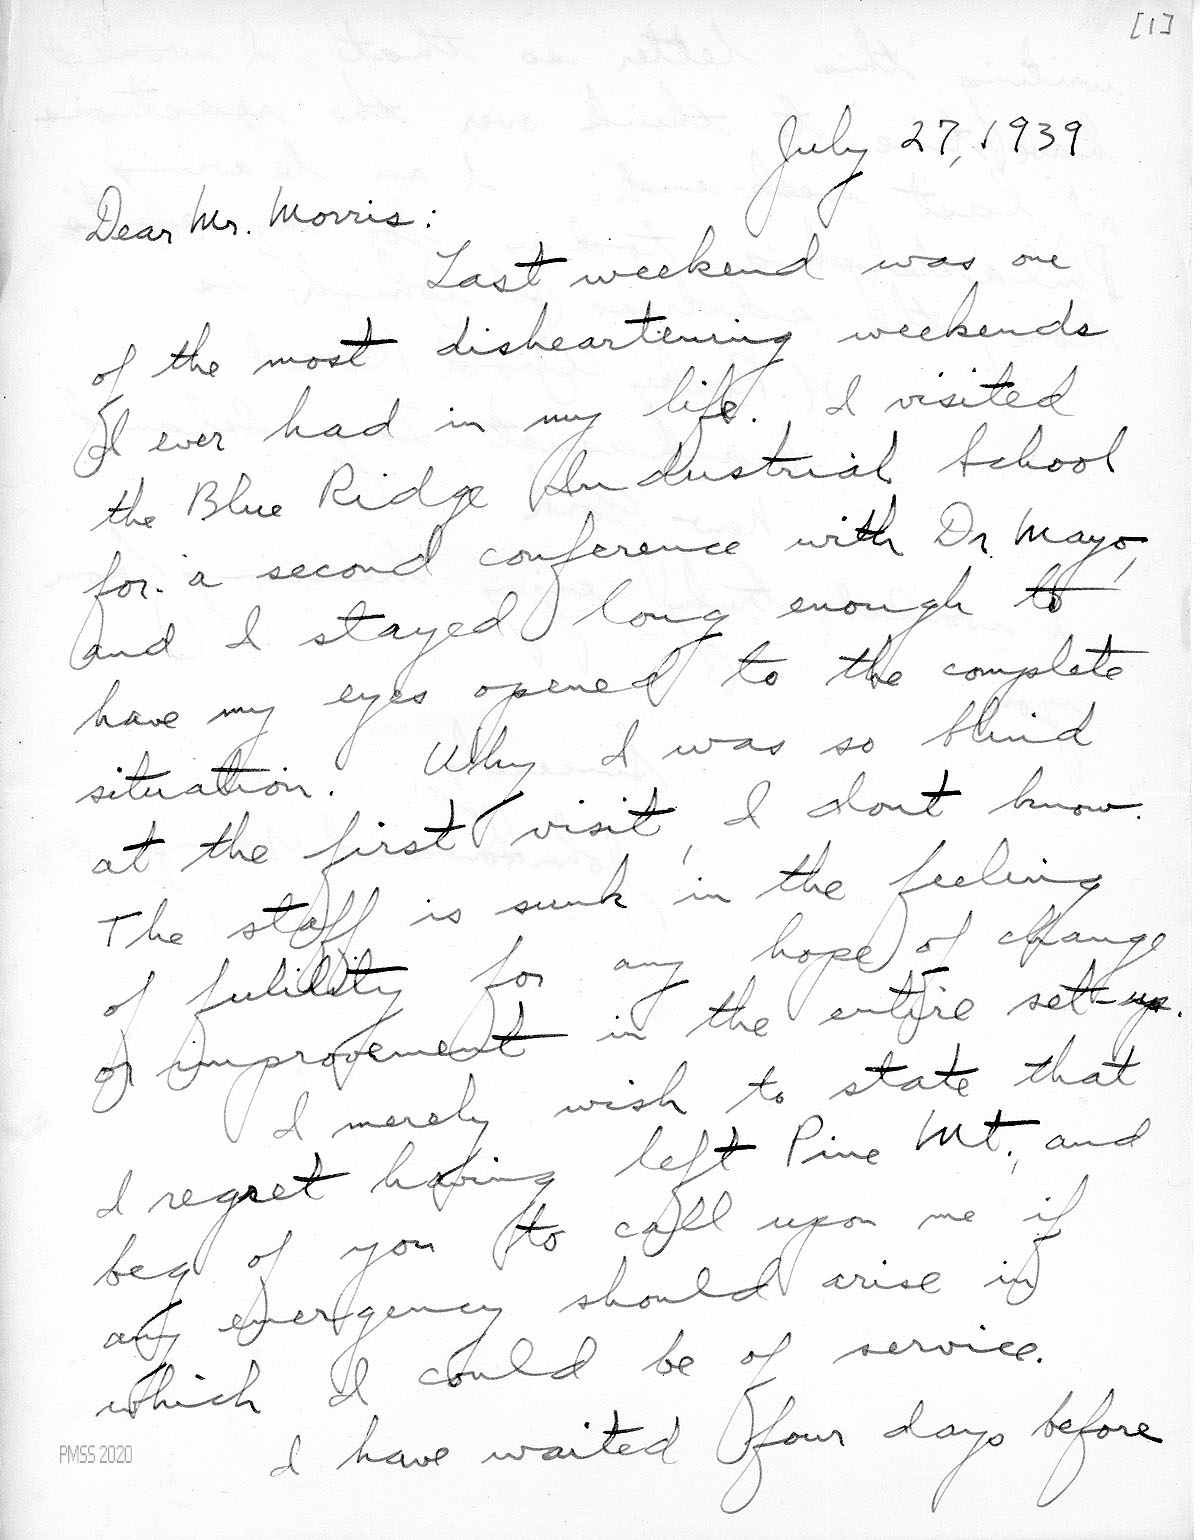 [1]
July 27, 1939
Dear Mr. Morris:
Last weekend was one
of the most disheartening weekends
I ever had in my life. I visited
the Blue Ridge Industrial School
for a second conference with Dr. Mayo,
and I stayed long enough to
have my eyes opened to the complete
situation. Why I was so blind
at the first visit, I dont know.
The staff is sunk in the feeling
of futility for any hope of change
or improvement in the entire set-up.
I merely wish to state that
I regret having left Pine Mt., and
beg of you to call upon me if
any emergency should arise in
which I could be of service.
I have waited four days before
PMSS 2020